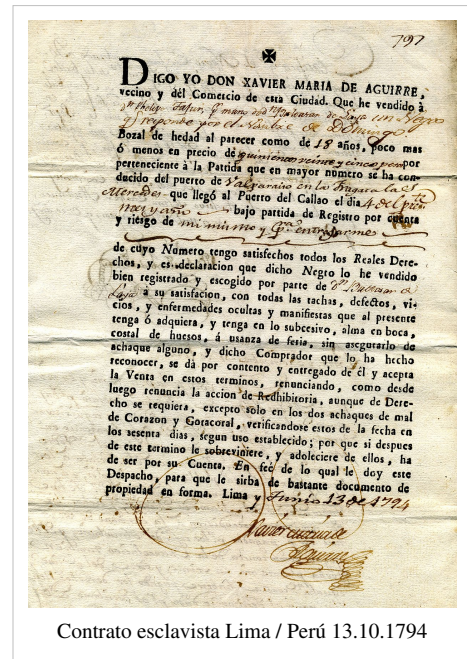 797
DIGO YO DON XAVIER MARIA DE AGUIRRE,
vecino y del Comercio de esta Ciudad. Que he vendido à
un Negro
y responde por el Nombre de Domingo
Bozal de hedad al parecer como de 18 años, poco mas
ó menos en precio de quinientos veinte y cinco pesos por
perteneciente à la Partida que en mayor numero se ha con-
ducido del puerto de Valparaiso en la Fragata las
Mercedes que llegó al Puerto del Callao el dia 4 del
mes y año bajo partida de Registro por cuenta
y riesgo de mi mismo y
de cuyo Numero tengo satisfechos todos los Reales Dere-
chos, y es declaracion que dicho Negro lo he vendido
bien registrado y escogido por parte de Dn Baltasar de
Laya à su satisfacion, con todas las tachas, defectos, vi-
cios, y enfermedades ocultas y manifiestas que al presente
tenga ó adquiera, y tenga en lo subcesivo, alma en boca,
costal de huesos, á usanza de feria, sin asegurarlo de
achaque alguno, y dicho Comprador que lo ha hecho
reconocer, se dà por contento y entregado de él y acepta
la Venta en estos terminos, renunciando, como desde
luego renuncia la accion de Redhibitoria, aunque de Dere-
cho se requiera, excepto solo en los dos achaques de mal
de Corazon y Gotacoral, verificandose estos de la fecha en
los sesenta dias, segun uso establecido; por que si despues
de este termino le sobreviniere, y adoleciere de ellos, ha
de ser por su Cuenta. En feé de lo qual le doy este
Despacho, para que le sirba de bastante documento de
propiedad en forma. Lima y Junio 13 de 1794
Xavier Maria de
Aguirre
Contrato esclavista Lima / Perú 13.10.1794